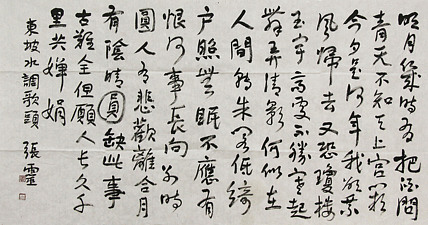 明月幾時有把酒問
青天不知天上宮闕
今夕是何年我欲乘
風歸去又恐瓊樓
玉宇高處不勝寒起
舞弄清影何似在
人間轉朱閣低綺
戶照無眠不應有
恨何事長向別時
圓人有悲歡離合月
有陰晴圓缺此事
古難全但願人長久千
里共嬋娟
東坡水調歌頭 張靈